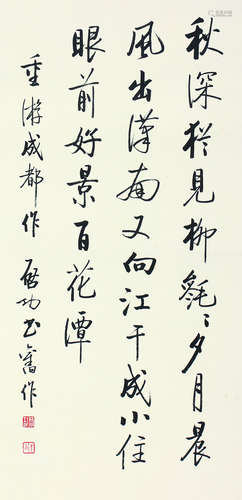 秋深猶見柳毿〻夕月晨
風出漢南又向江干成小住
眼前好景百花潭
重游成都作 啟功書舊作